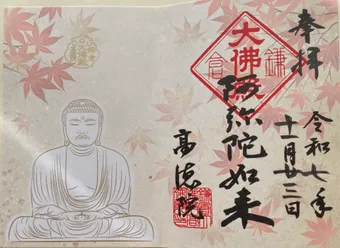 奉拝
令和七年
十一月廿三日
大佛殿
鎌倉
阿弥陀如来
高徳院